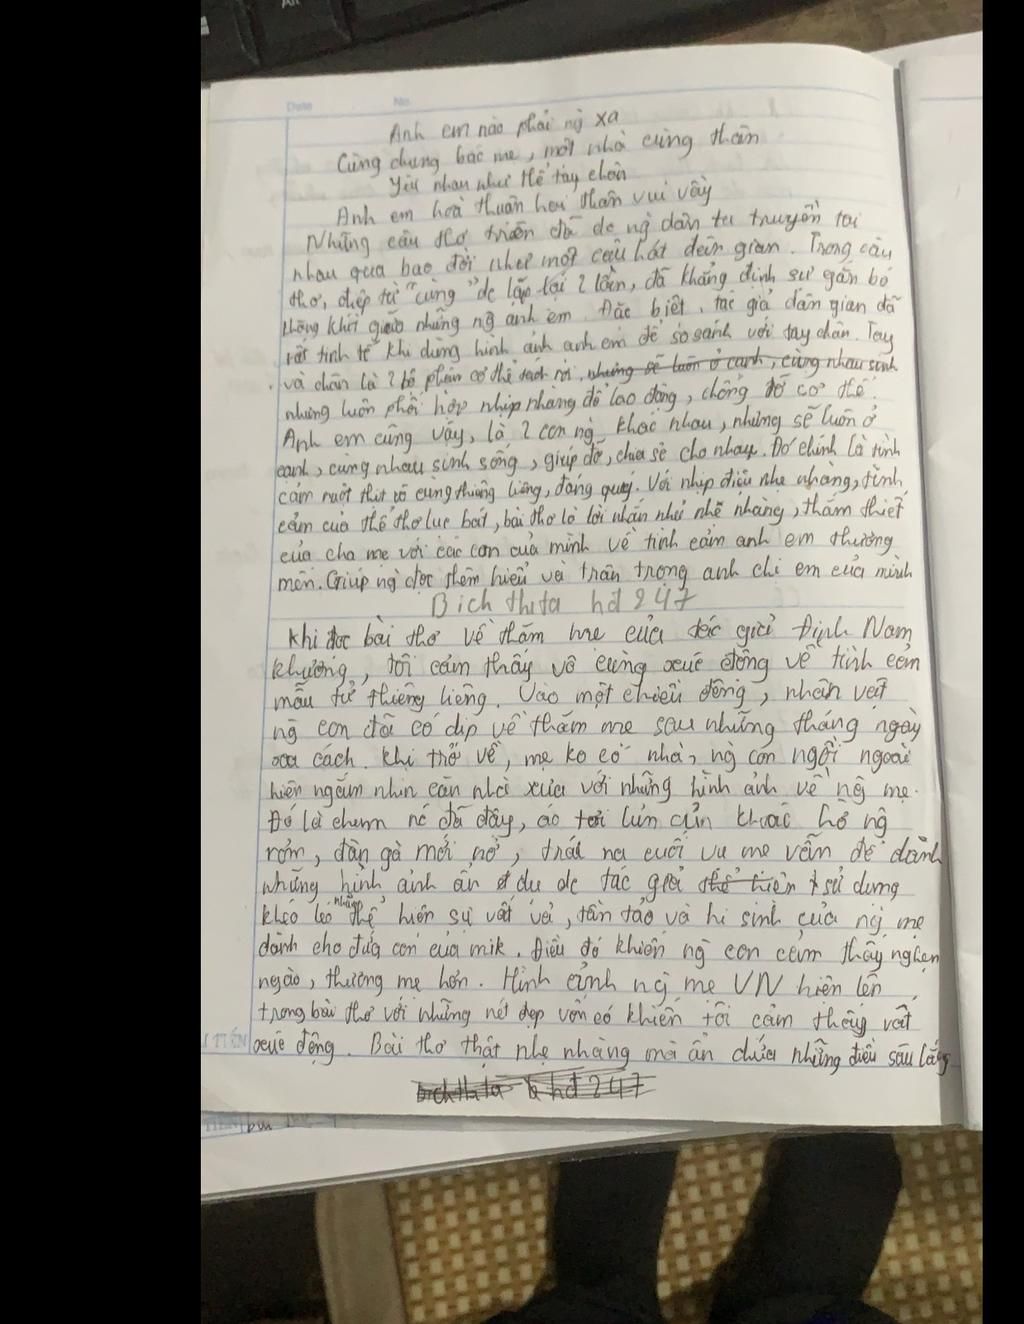 Date No.
Anh em nào phải ng xa
Cùng chung bác mẹ, một nhà cùng thân
Yêu nhau như thể tay chân
Anh em hoà thuận hai thân vui vầy
Những câu thơ trên đã dc ng dân ta truyền tai
nhau qua bao đời như một câu hát dân gian. Trong câu
thơ, điệp từ "cùng" dc lặp lại 2 lần, đã khẳng định sự gắn bó
những ng anh em. Đặc biệt, tác giả dân gian đã
rất tinh tế khi dùng hình ảnh anh em để so sánh với tay chân. Tay
và chân là 2 bộ phận cơ thể tách rời, nhưng sẽ luôn ở cạnh, cùng nhau sinh
nhưng luôn phối hợp nhịp nhàng để lao động, chống đỡ cơ thể.
Anh em cũng vậy, là 2 con ng khác nhau, nhưng sẽ luôn ở
cạnh, cùng nhau sinh sống, giúp đỡ, chia sẻ cho nhau. Đó chính là tình
cảm ruột thịt vô cùng thiêng liêng, đáng quý. Với nhịp điệu nhẹ nhàng, tình
cảm của thể thơ lục bát, bài thơ là lời nhắn nhủ nhẹ nhàng, thắm thiết
của cha mẹ với các con của mình về tình cảm anh em thương
mến. Giúp ng đọc thêm hiểu và trân trọng anh chị em của mình
Bich thita hd 247
Khi đọc bài thơ về thăm mẹ của tác giả Đinh Nam
Khương, tôi cảm thấy vô cùng xúc động về tình cảm
mẫu tử thiêng liêng. Vào một chiều đông, nhân vật
ng con đã có dịp về thăm mẹ sau những tháng ngày
xa cách. Khi trở về, mẹ ko có nhà, ng con ngồi ngoài
hiên ngắm nhìn căn nhà xưa với những hình ảnh về ng mẹ.
Đó là chum nc đã đậy, áo tơi lủn củn khoác hờ ng
rơm, đàn gà mới nở, trái na cuối vụ mẹ vẫn để dành
những hình ảnh ẩn dụ dc tác giả thể hiện sử dụng
khéo léo nhằm thể hiện sự vất vả, tần tảo và hi sinh của ng mẹ
dành cho đứa con của mik. Điều đó khiến ng con cảm thấy nghẹn
ngào, thương mẹ hơn. Hình ảnh ng mẹ VN hiện lên
trong bài thơ với những nét đẹp vốn có khiến tôi cảm thấy rất
xúc động. Bài thơ thật nhẹ nhàng mà ẩn chứa những điều sâu lắng
hd 247